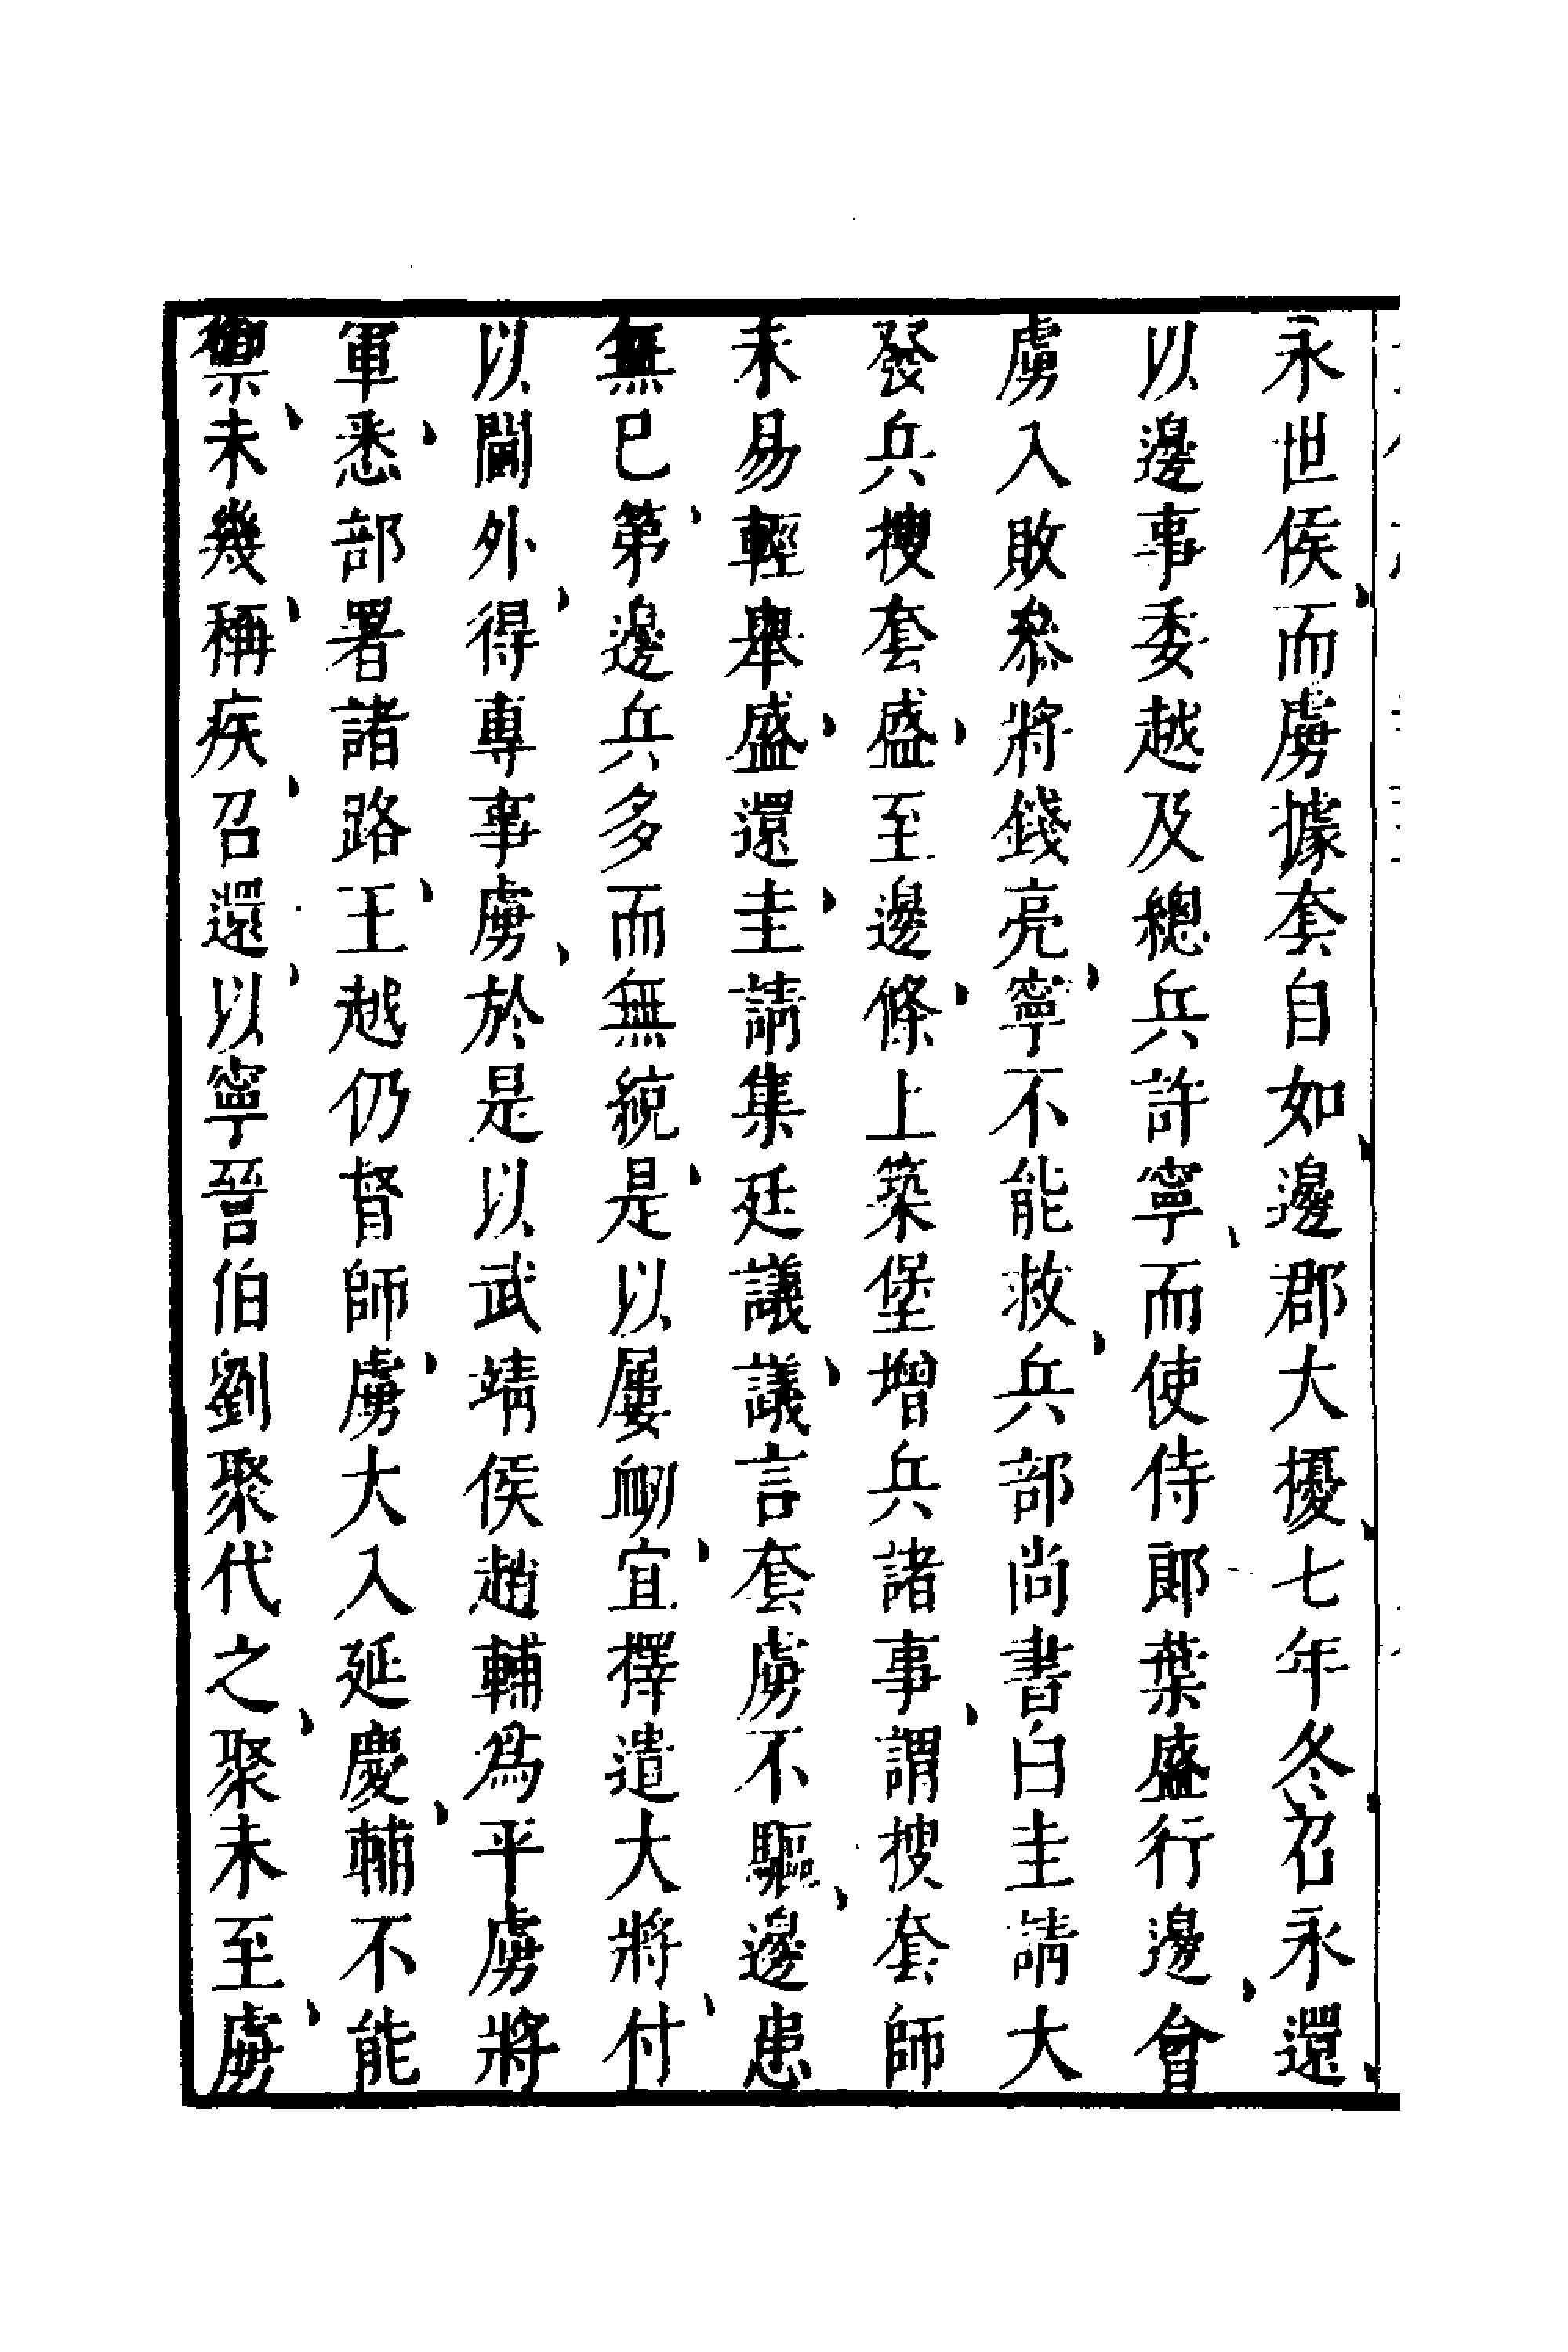 永世侯而虜據套自如邊郡大擾七年冬召永還
以邊事委越及總兵許寧而使侍郎葉盛行邊會
虜入敗叅將錢亮寧不能救兵部尚書白圭請大
發兵搜套盛至邊條上築堡增兵諸事謂搜套師
未易輕舉盛還圭請集廷議議言套虜不驅邊患
無已第邊兵多而無統是以屢衂宜擇遣大將付
以閫外得專事虜於是以武靖侯趙輔爲平虜將
軍悉部署諸路王越仍督師虜大入延慶輔不能
禦未幾稱疾召還以寧晉伯劉聚代之聚未至虜